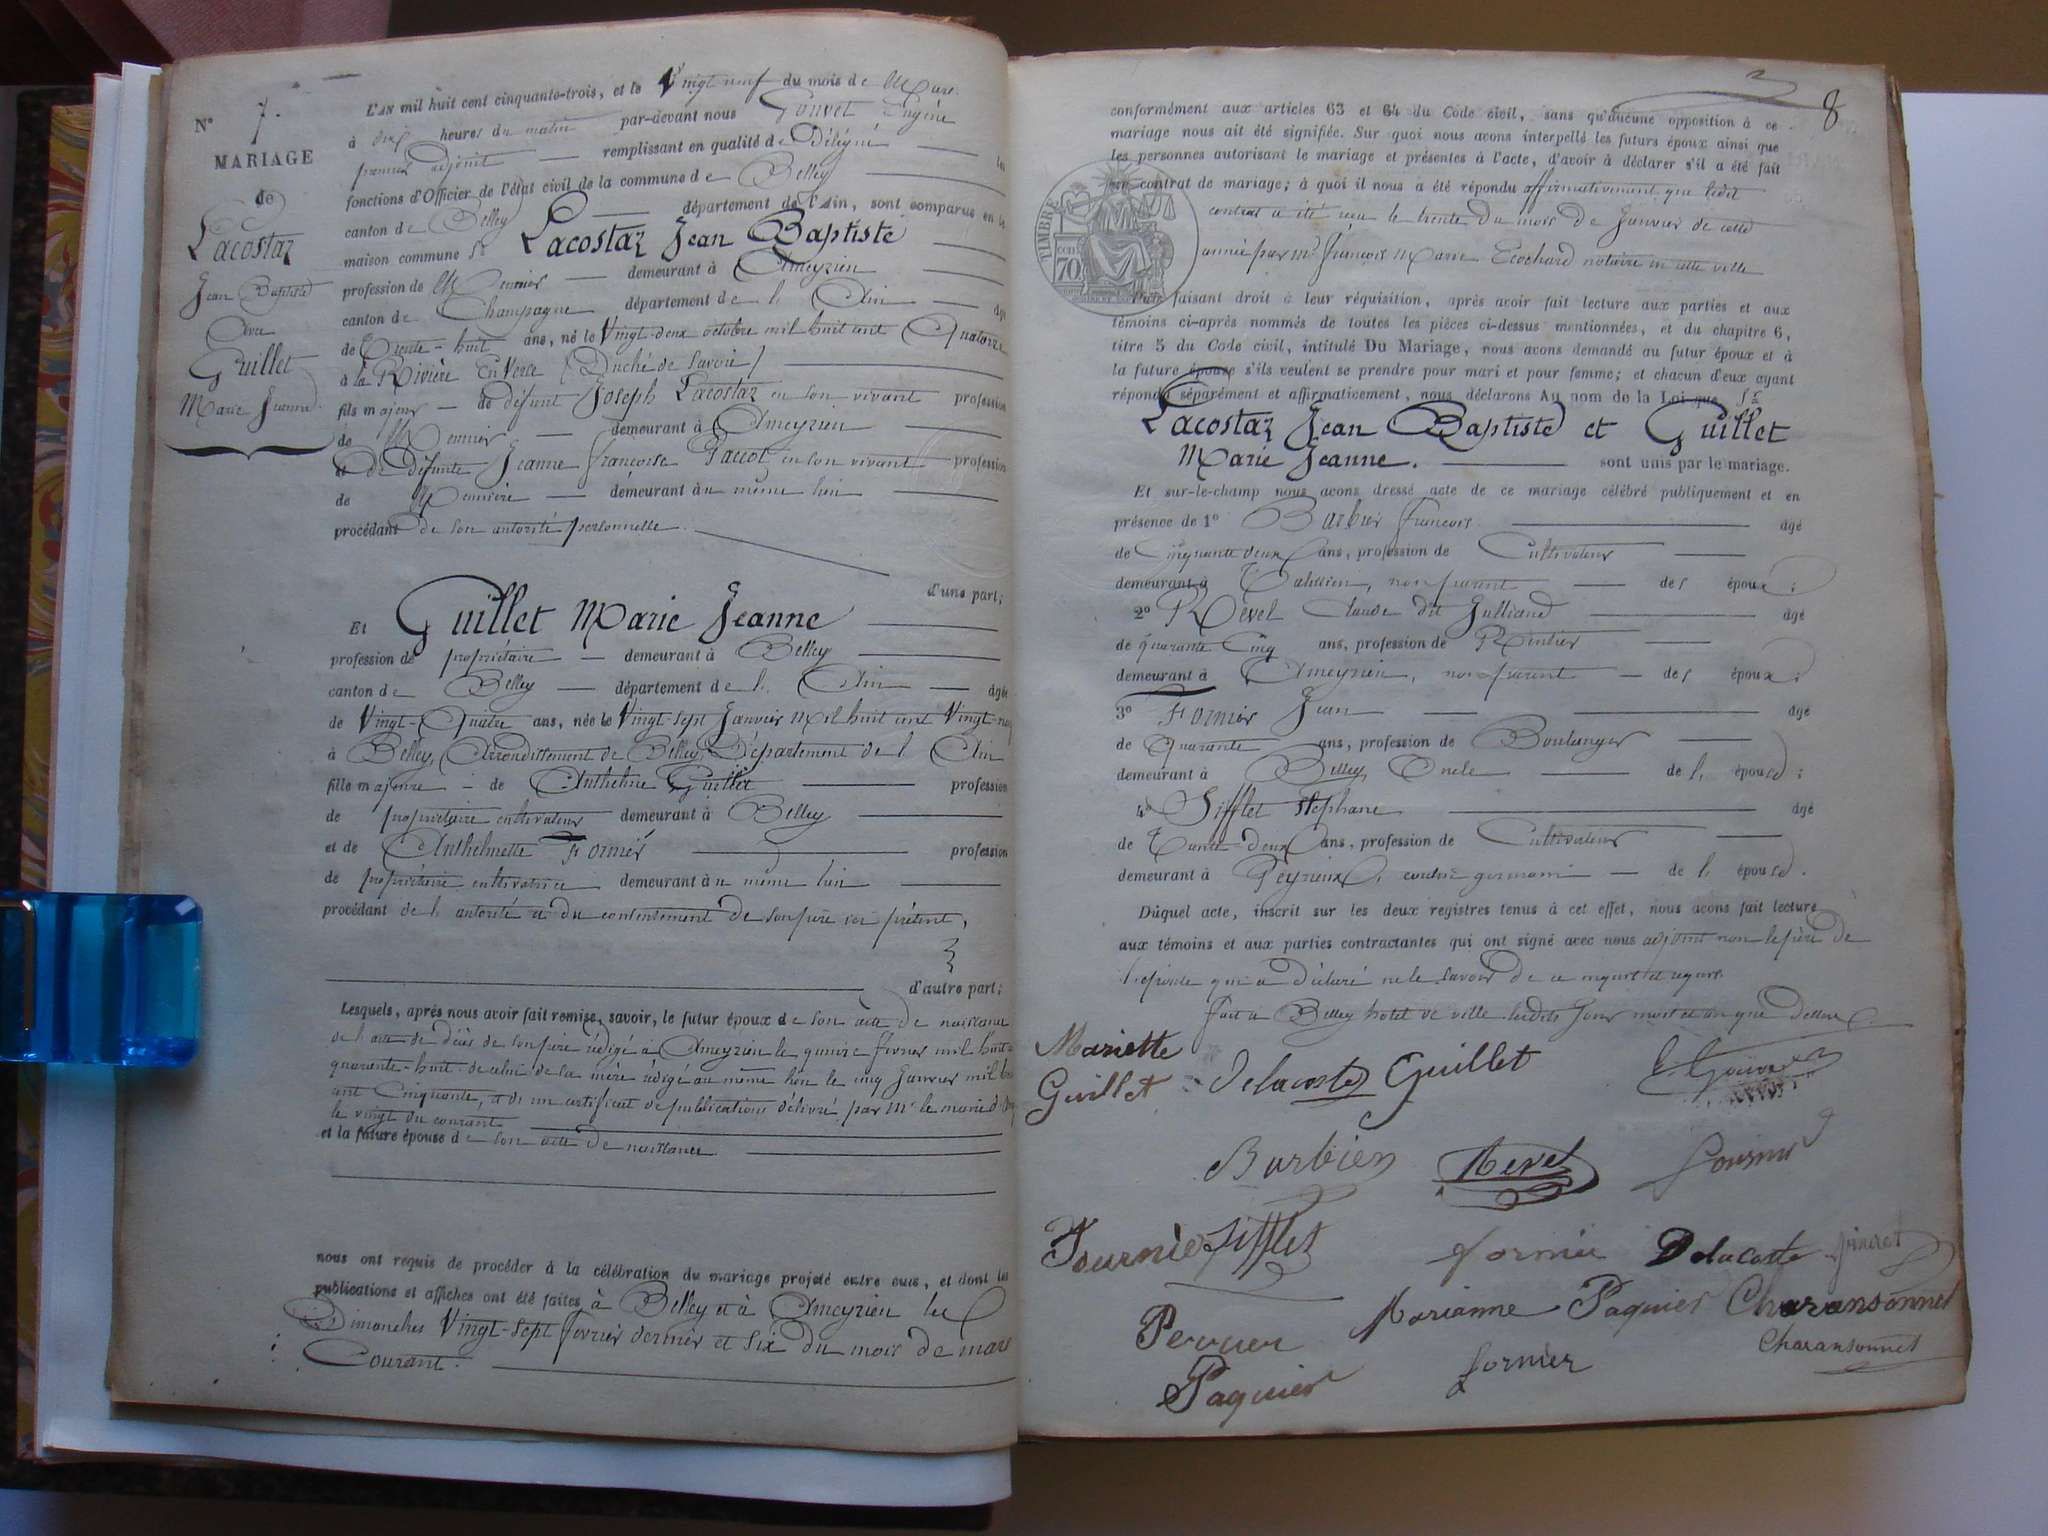 N° 7.
MARIAGE
de
Lacostaz
Jean Baptiste
Avec
Guillet
Marie Jeanne
L'AN mil huit cent cinquante-trois, et le Vingt neuf du mois de Mars
à dix heures du matin par-devant nous Gouvet Eugène
premier adjoint remplissant en qualité de Délégué les
fonctions d'Officier de l'état civil de la commune de Belley
canton de Belley département de l'Ain, sont comparus en la
maison commune Sr Lacostaz Jean Baptiste
profession de Meunier demeurant à Ameyzieu
canton de Champagne département de l'Ain âgé
de Trente-huit ans, né le Vingt-deux octobre mil huit cent Quatorze
à la Rivière Enverse (Duché de Savoie)
fils majeur de défunt Joseph Lacostaz en son vivant profession
de Meunier demeurant à Ameyzieu
et de défunte Jeanne françoise Paccot en son vivant profession
de Meunière demeurant au même lieu
procédant de son autorité personnelle.
d'une part;
Et Guillet Marie Jeanne
profession de propriétaire demeurant à Belley
canton de Belley département de l'Ain âgée
de Vingt-Quatre ans, née le Vingt-sept Janvier Mil huit cent Vingt-neuf
à Belley, Arrondissement de Belley, Département de l'Ain
fille majeure de Anthelme Guillet profession
de propriétaire cultivateur demeurant à Belley
et de Anthelmette Fornier profession
de propriétaire cultivatrice demeurant au même lieu
procédant de l'autorité et du consentement de son père ici présent,
d'autre part;
Lesquels, après nous avoir fait remise, savoir, le futur époux de son acte de naissance
de l'acte de décès de son père rédigé à Ameyzieu le quinze février mil huit
quarante-huit de celui de sa mère rédigé au même lieu le cinq Janvier mil huit
cent Cinquante, et d'un certificat de publications délivré par Mr le maire d'
le vingt du courant
et la future épouse de son acte de naissance
nous ont requis de procéder à la célébration du mariage projeté entre eux, et dont les
publications et affiches ont été faites à Belley et à Ameyzieu les
Dimanches Vingt-sept février dernier et six du mois de mars
Courant.
8
conformément aux articles 63 et 64 du Code civil, sans qu'aucune opposition à ce
mariage nous ait été signifiée. Sur quoi nous avons interpellé les futurs époux ainsi que
les personnes autorisant le mariage et présentes à l'acte, d'avoir à déclarer s'il a été fait
un contrat de mariage; à quoi il nous a été répondu affirmativement que ledit
contrat a été reçu le trente du mois de Janvier de cette
année par Me françois Marie Ecochard notaire en cette ville
TIMBRE
70
faisant droit à leur réquisition, après avoir fait lecture aux parties et aux
témoins ci-après nommés de toutes les pièces ci-dessus mentionnées, et du chapitre 6,
titre 5 du Code civil, intitulé Du Mariage, nous avons demandé au futur époux et à
la future épouse s'ils veulent se prendre pour mari et pour femme; et chacun d'eux ayant
répondu séparément et affirmativement, nous déclarons Au nom de la Loi que Sr
Lacostaz Jean Baptiste et Guillet
Marie Jeanne. sont unis par le mariage.
Et sur-le-champ nous avons dressé acte de ce mariage célébré publiquement et en
présence de 1° Barbier françois âgé
de Cinquante deux ans, profession de Cultivateur
demeurant à Talissieu, non parent des époux;
2° Revel Claude dit Julliand âgé
de quarante Cinq ans, profession de Rentier
demeurant à Ameyzieu, non parent des époux;
3° Fornier Jean âgé
de Quarante ans, profession de Boulanger
demeurant à Belley, Oncle de l'épouse;
4° Sifflet Stéphane âgé
de Trente-deux ans, profession de Cultivateur
demeurant à Peyrieux, cousin germain de l'épouse.
Duquel acte, inscrit sur les deux registres tenus à cet effet, nous avons fait lecture
aux témoins et aux parties contractantes qui ont signé avec nous adjoint non le père de
l'épouse qui a déclaré ne le savoir de ce enquis et requis.
fait à Belley hotel de ville lesdits Jour mois et an que dessus.
Mariette
Guillet Delacoste Guillet E. Gouvet
Barbier Revel
Fournié Sifflet fornier Delacoste
Perrier Marianne Paquier Charansonnet
Paquier fornier Charansonnet